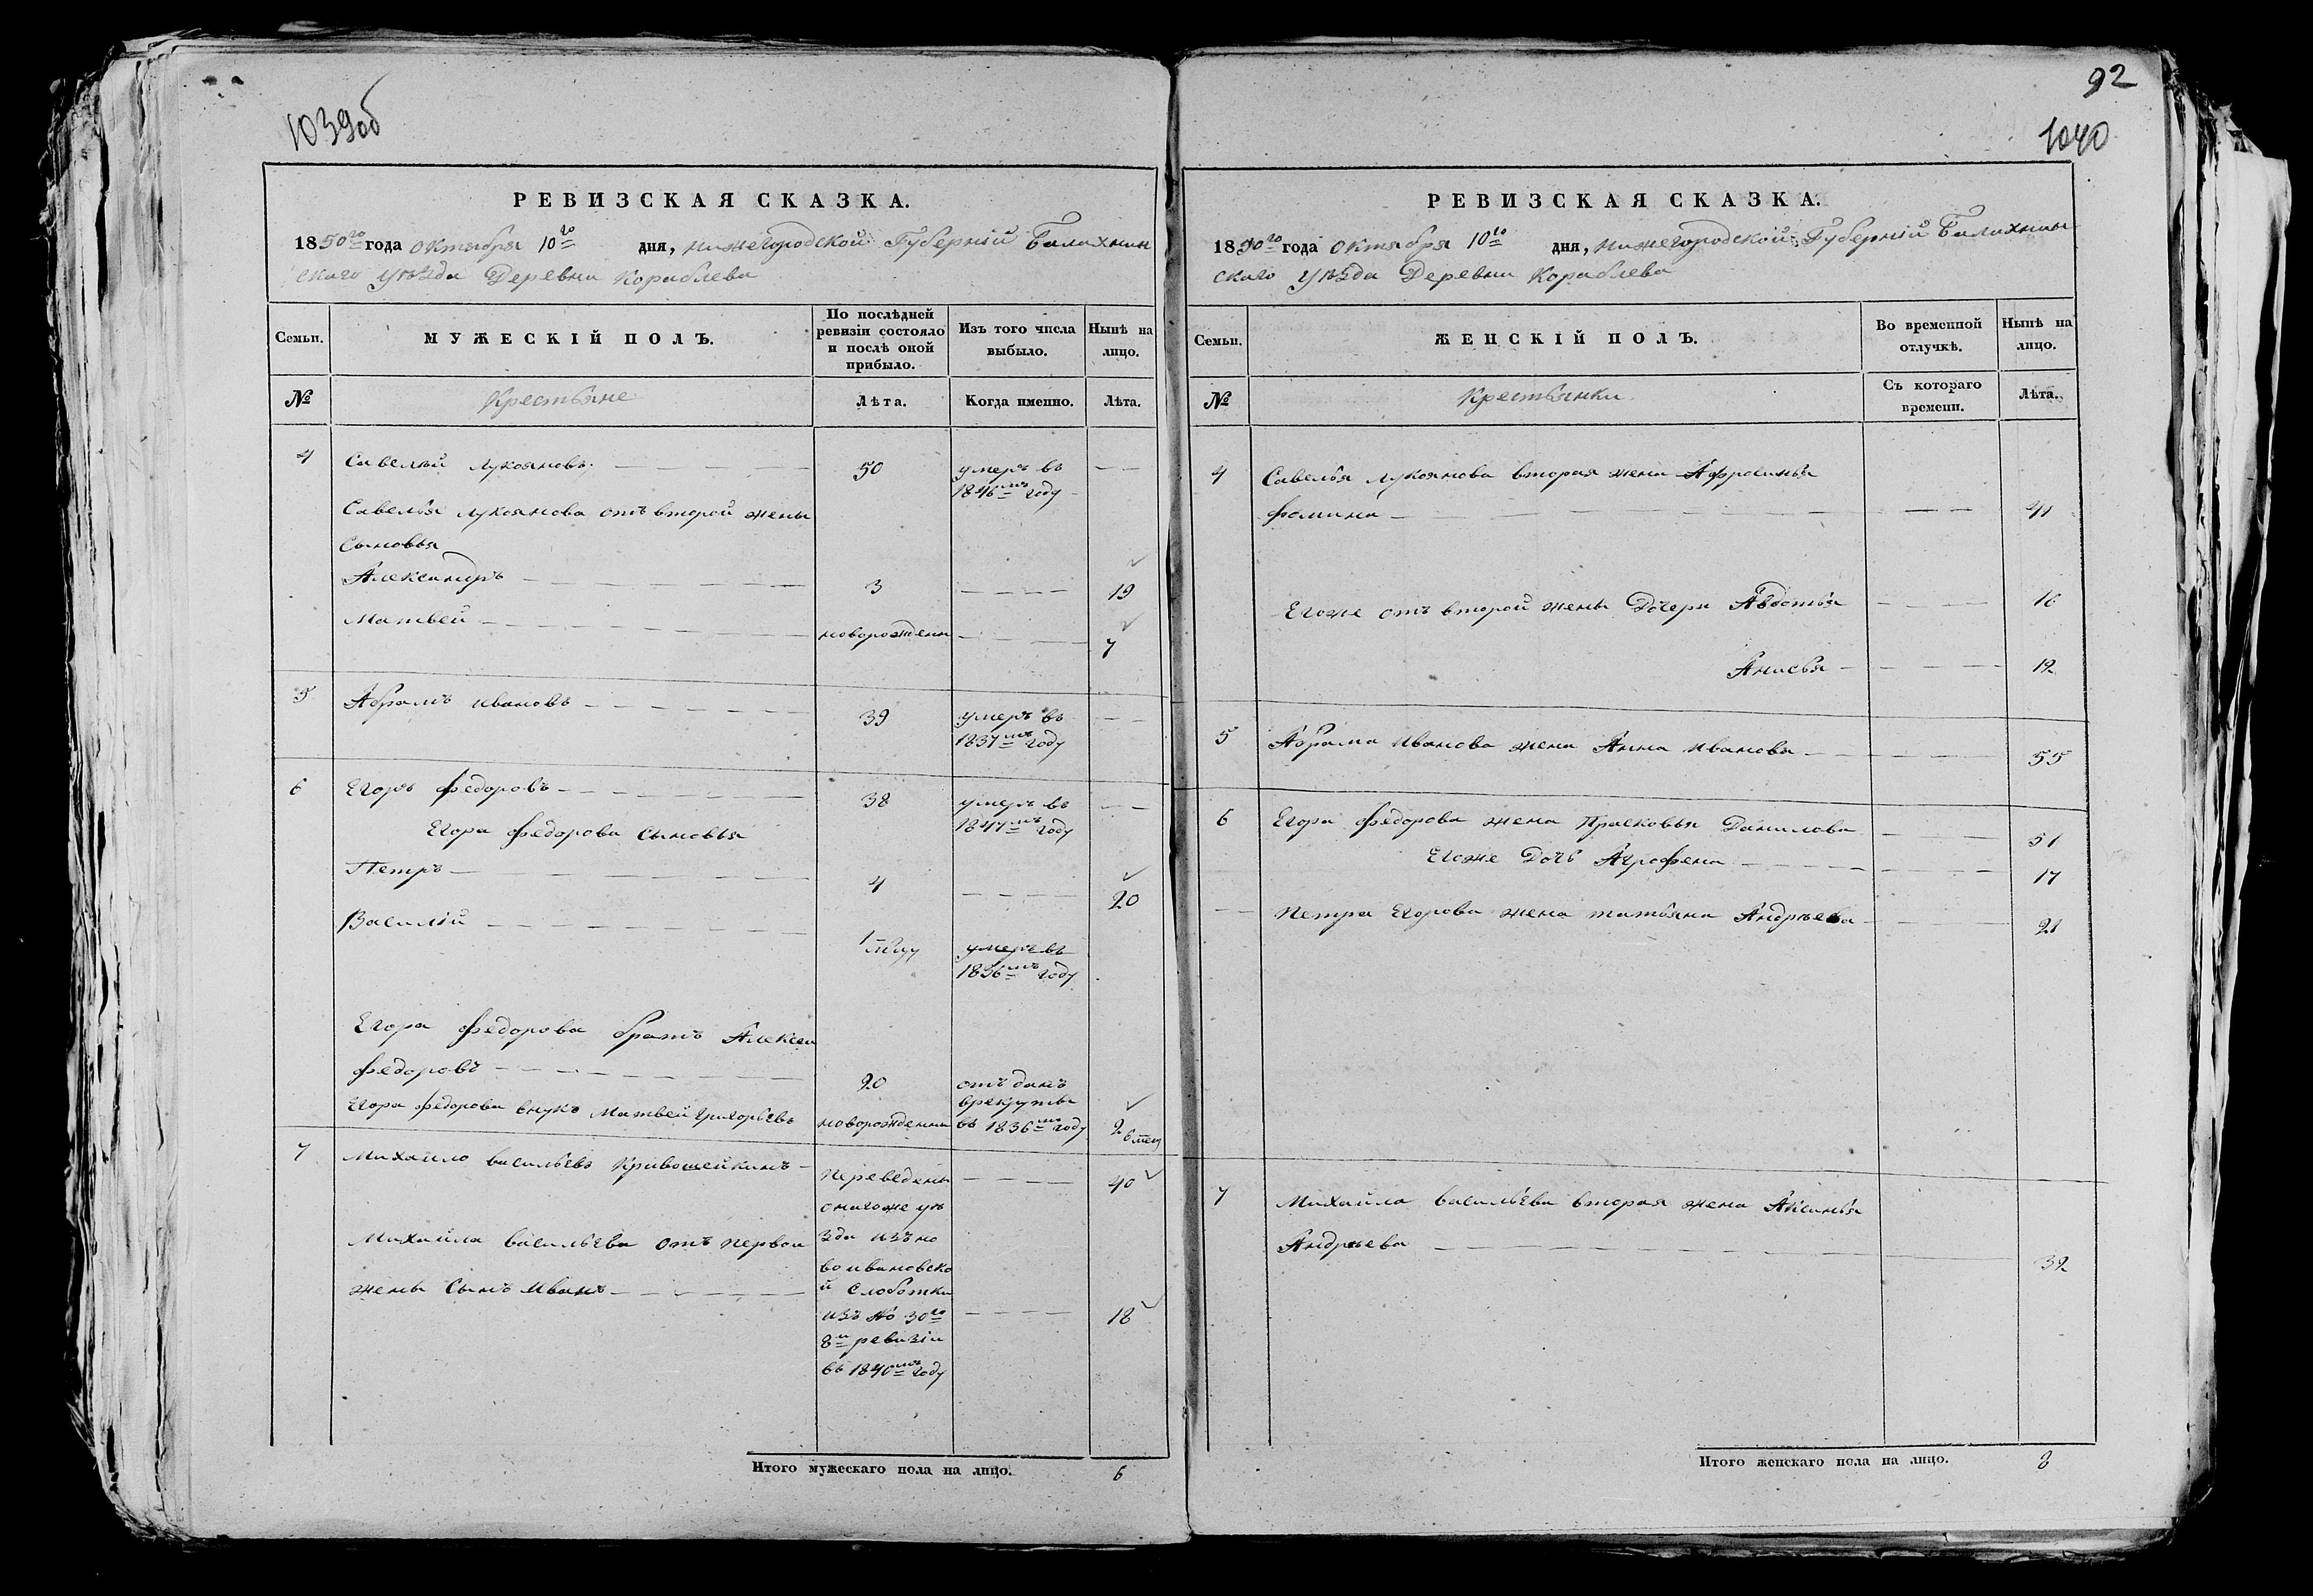 1039об
РЕВИЗСКАЯ СКАЗКА.
1850го года октября 10го дня, нижегородской Губерніи Балахнин
скаго уѣзда Деревни Кораблева
Семьи.
МУЖЕСКІЙ ПОЛЪ.
По послѣдней ревизіи состояло и послѣ оной прибыло.
Изъ того числа выбыло.
Нынѣ на лицо.
№
Крестьяне
Лѣта.
Когда именно.
Лѣта.
4 Савелѣй Лукояновъ. 50 умеръ въ
1846мъ году
Савелья Лукоянова отъ второй жены
сыновья
Александръ 3 19
Матвей новорожденн 7
5 Абрамъ Ивановъ 39 умеръ въ
1837мъ году
6 Егоръ Федоровъ 38 умеръ въ
1847мъ году
Егора Федорова сыновья
Петръ 4 20
Василій 1 мцу умеръ въ
1836мъ году
Егора Федорова братъ Алексеи
Федоровъ 20 отъ данъ
врекруты
Егора Федорова внукъ Матвей Григорьевъ новорожденны въ 1836мъ году 2 6 мец
7 Михайло Васильевъ Кривошейкинъ 40
переведены
онагоже уѣ
Михайла Васильева отъ первой зда изъ но
воивановско
жены сынъ Иванъ й слоботки
изъ № 30го 18
8й ревизіи
въ 1840мъ году
Итого мужескаго пола на лицо. 6
92
1040
РЕВИЗСКАЯ СКАЗКА.
1850го года октября 10го дня, нижегородской Губерніи Балахнин
скаго уѣзда Деревни Кораблева
Семьи.
ЖЕНСКІЙ ПОЛЪ.
Во временной отлучкѣ.
Нынѣ на лицо.
№
Крестьянки
Съ котораго времени.
Лѣта.
4 Савелья Лукоянова вторая жена Афросинья
Фомина 41
Егоже отъ второй жены Дочери Авдотья 16
Анисья 12
5 Абрама Иванова жена Анна Иванова 55
6 Егора Федорова жена Прасковья Данилова 51
Егоже Дочь Аграфена 17
Петра Егорова жена Татьяна Андрѣева 21
7 Михайла Васильева вторая жена Аксинья
Андрѣева 32
Итого женскаго пола на лицо. 8